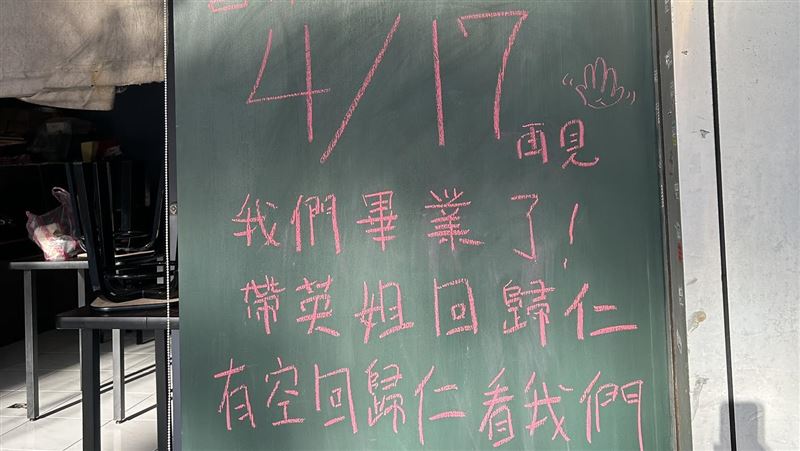 4/17
再見
我們畢業了！
帶英姐回歸仁
有空回歸仁看我們